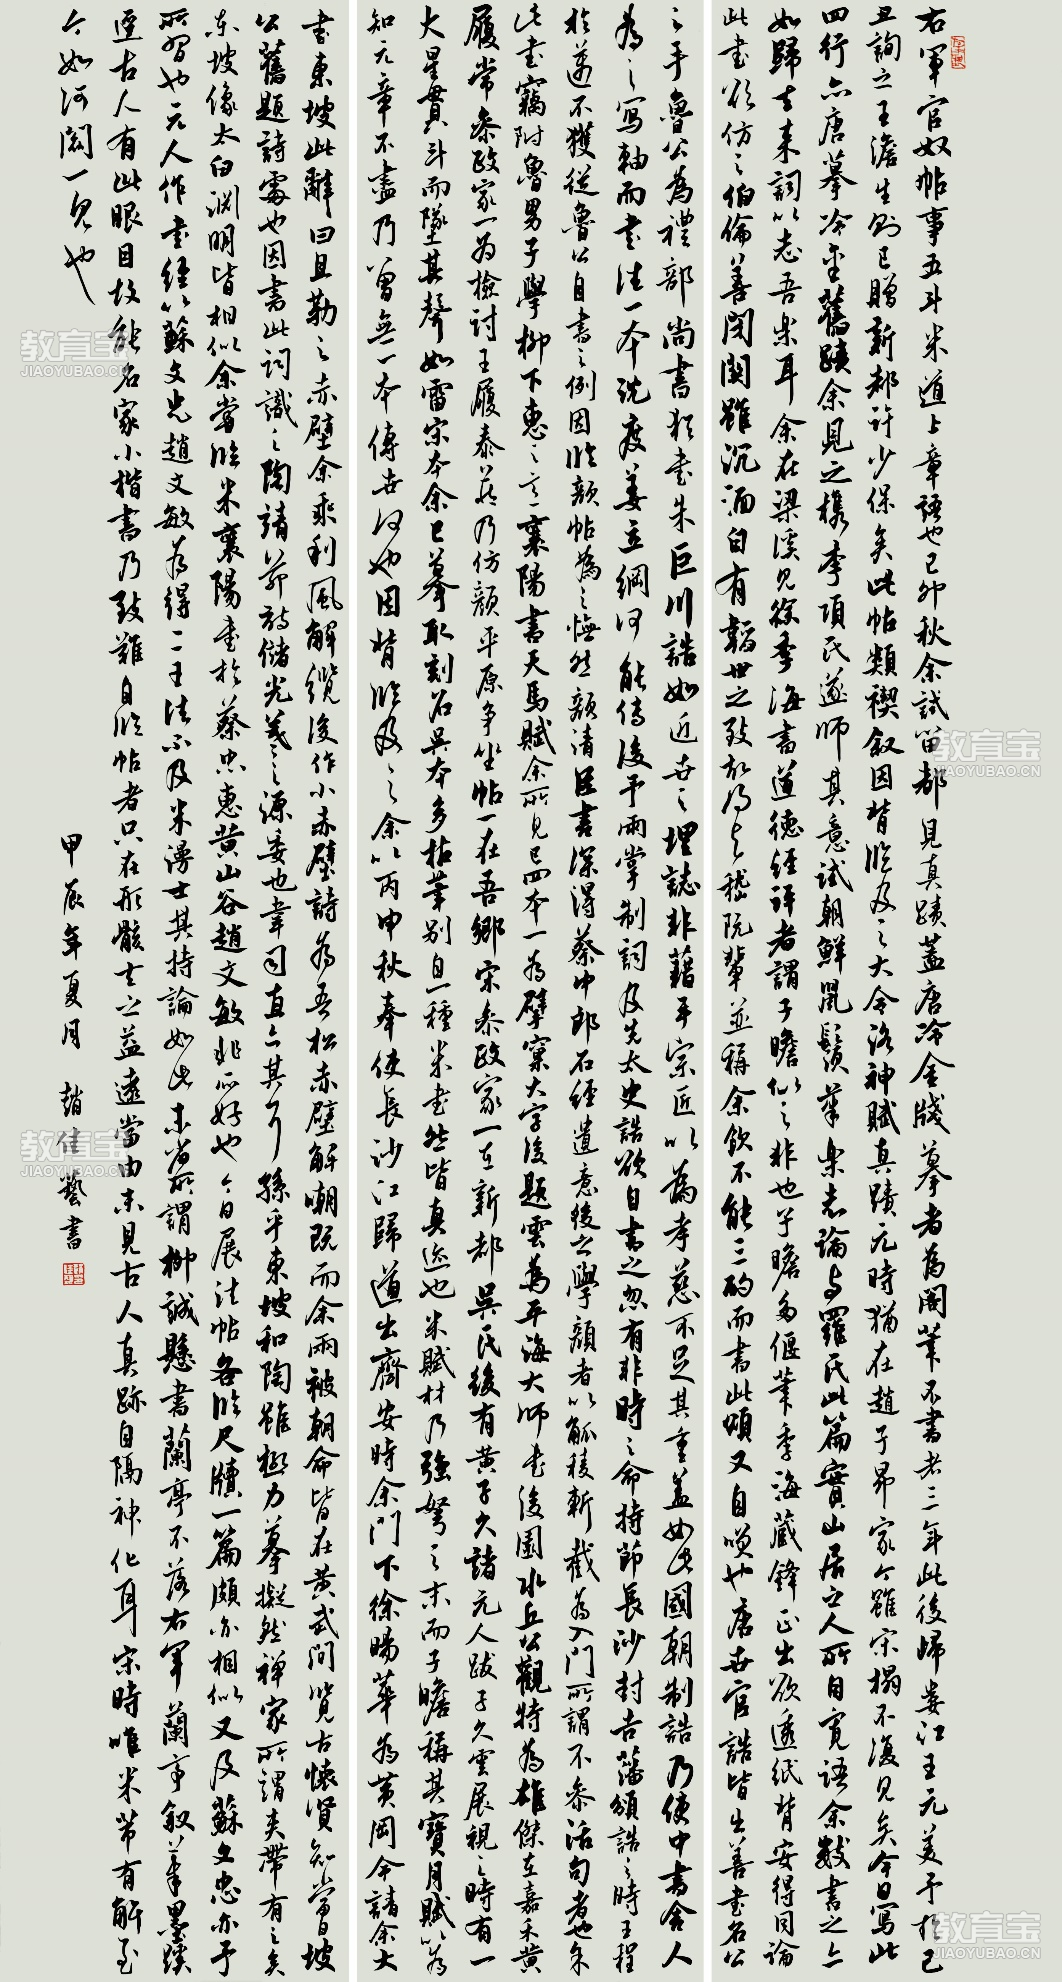 右軍官奴帖事五斗米道上章語也己卯秋余試留都見真蹟蓋唐冷金牋摹者為閣筆不書者三年此後婦婁江王元美予於己
丑詢之王澹生則已贈新都許少保矣此帖類禊叙因背臨及之大令洛神賦真蹟元時猶在趙子昂家今雖宋搨不復見矣今日寫此
四行亦唐摹冷金舊蹟余見之檇李項氏遂師其意試朝鮮鼠鬚筆樂志論與羅氏此篇實山居之人所自寬語余數書之亦
如歸去來詞以志吾樂耳余在梁溪見徐季海書道德經評者謂子瞻似之非也子瞻多偃筆季海藏鋒正出欲透紙背安得同論
此書欲仿之伯倫善閉關雖沉湎自有韜世之致故得與嵇阮輩並稱余飲不能三酌而書此頌又自嘆也唐世官誥皆出善書名公
之手魯公為禮部尚書猶書朱巨川誥如近世之埋誌非藉手宗匠以為孝慈不足其重蓋如此國朝制誥乃使中書舍人
為之寫軸而書法一本沈度姜立綱何能傳後予兩掌制詞及先太史誥欲自書之忽有非時之命持節長沙封吉藩頒誥之時王程
於邁不獲從魯公自書之例因臨顏帖為之憮然顏清臣書深得蔡中郎石經遺意後之學顏者以觚稜斬截為入門所謂不參活句者也余
此書竊附魯男子學柳下惠之意襄陽書天馬賦余所見已四本一為擘窠大字後題雲為平海大師書後園水丘公觀特為雄傑在嘉禾黃
履常參政家一為檢討王履泰藏乃仿顏平原爭坐帖一在吾鄉宋參政家一在新都吳氏後有黃子久諸元人跋子久雲展視之時有一
大星貫斗而墜其聲如雷宋本余已摹取刻石吳本多枯筆別自一種米書然皆真迹也米賦材乃強弩之末而子瞻稱其寶月賦以為
知元章不盡乃曾無一本傳世何也因背臨及之余以丙申秋奉使長沙江歸道出齊安時余門下徐暘華為黃岡令請余大
書東坡此辭曰且勒之赤壁余乘利風解纜後作小赤壁詩為吾松赤壁解嘲既而余兩被朝命皆在黃武間覽古懷賢知當曾坡
公舊題詩處也因書此詞識之陶靖節詩儲光羲之源委也韋司直亦其耳孫乎東坡和陶雖極力摹擬然禪家所謂夾帶有之矣
東坡像太白淵明皆相似余嘗臨米襄陽書於蔡忠惠黃山谷趙文敏非所好也今日展法帖各臨尺牘一篇頗亦相似又及蘇文忠亦予
所習也元人作書經以蘇文忠趙文敏為得二王法不及米漫士其持論如此未嘗所謂柳誠懸書蘭亭不落右軍蘭亭叙筆墨蹊
逕古人有此眼目故能名家小楷書乃致難自臨帖者只在形骸去之益遠當由未見古人真跡自隔神化耳宋時唯米芾有解至
今如河閼一見也
甲辰年夏月 趙佳藝書
教育宝
JIAOYUBAO.CN
教育宝
JIAOYUBAO.CN
教育宝
JIAOYUBAO.CN
教育宝
JIAOYUBAO.CN